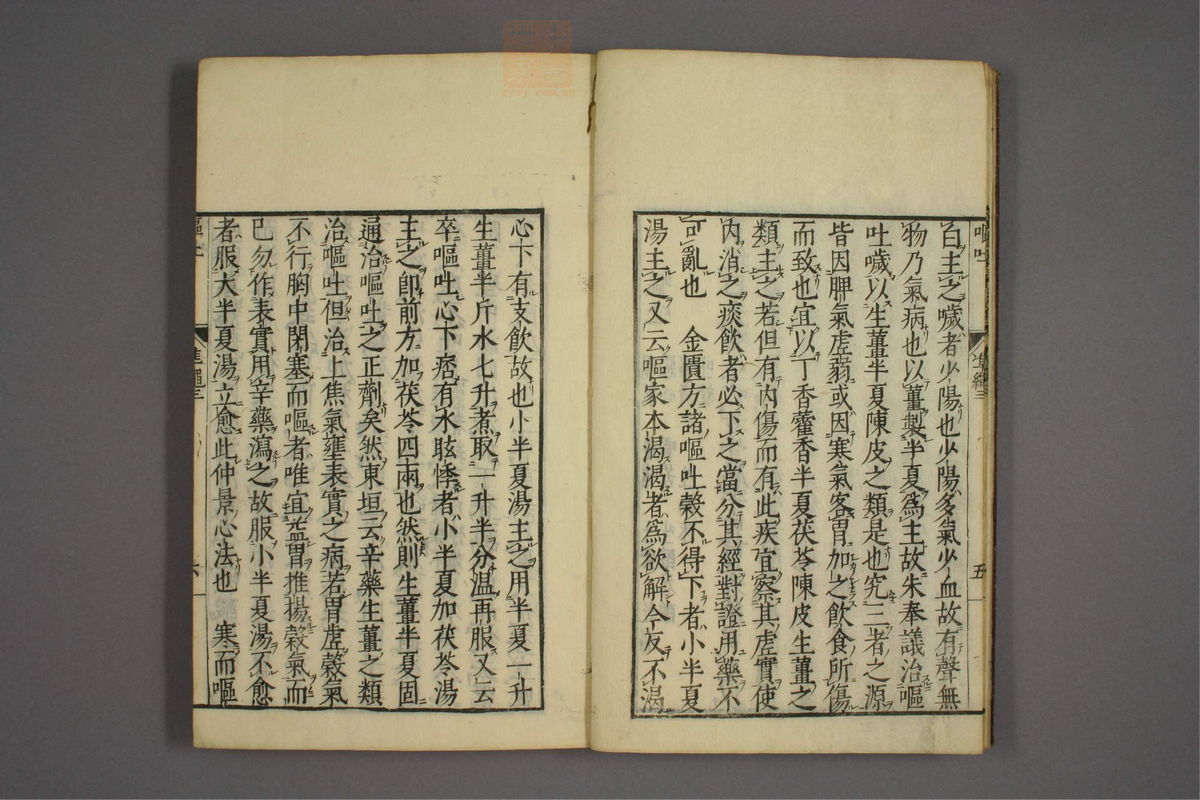 白主之噦者少陽也少陽多氣少血故有聲無
物乃氣病也以薑製半夏爲主故朱奉議治嘔
吐噦以生薑半夏陳皮之類是也究三者之源
皆因脾氣虛弱或因寒氣客胃加之飮食所傷
而致也宜以丁香藿香半夏茯苓陳皮生薑之
類主之若但有內傷而有此疾宜察其虛實使
內消之痰飮者必下之當分其經對證用藥不
可亂也　金匱方諸嘔吐穀不得下者小半夏
湯主之又云嘔家本渴渴者爲欲解今反不渴
心下有支飮故也小半夏湯主之用半夏一升
生薑半斤水七升煮取一升半分溫再服又云
卒嘔吐心下痞有水眩悸者小半夏加茯苓湯
主之卽前方加茯苓四兩也然則生薑半夏固
通治嘔吐之正劑矣然東垣云辛藥生薑之類
治嘔吐但治上焦氣壅表實之病若胃虛穀氣
不行胸中閉塞而嘔者唯宜益胃推揚穀氣而
已勿作表實用辛藥瀉之故服小半夏湯不愈
者服大半夏湯立愈此仲景心法也　寒而嘔